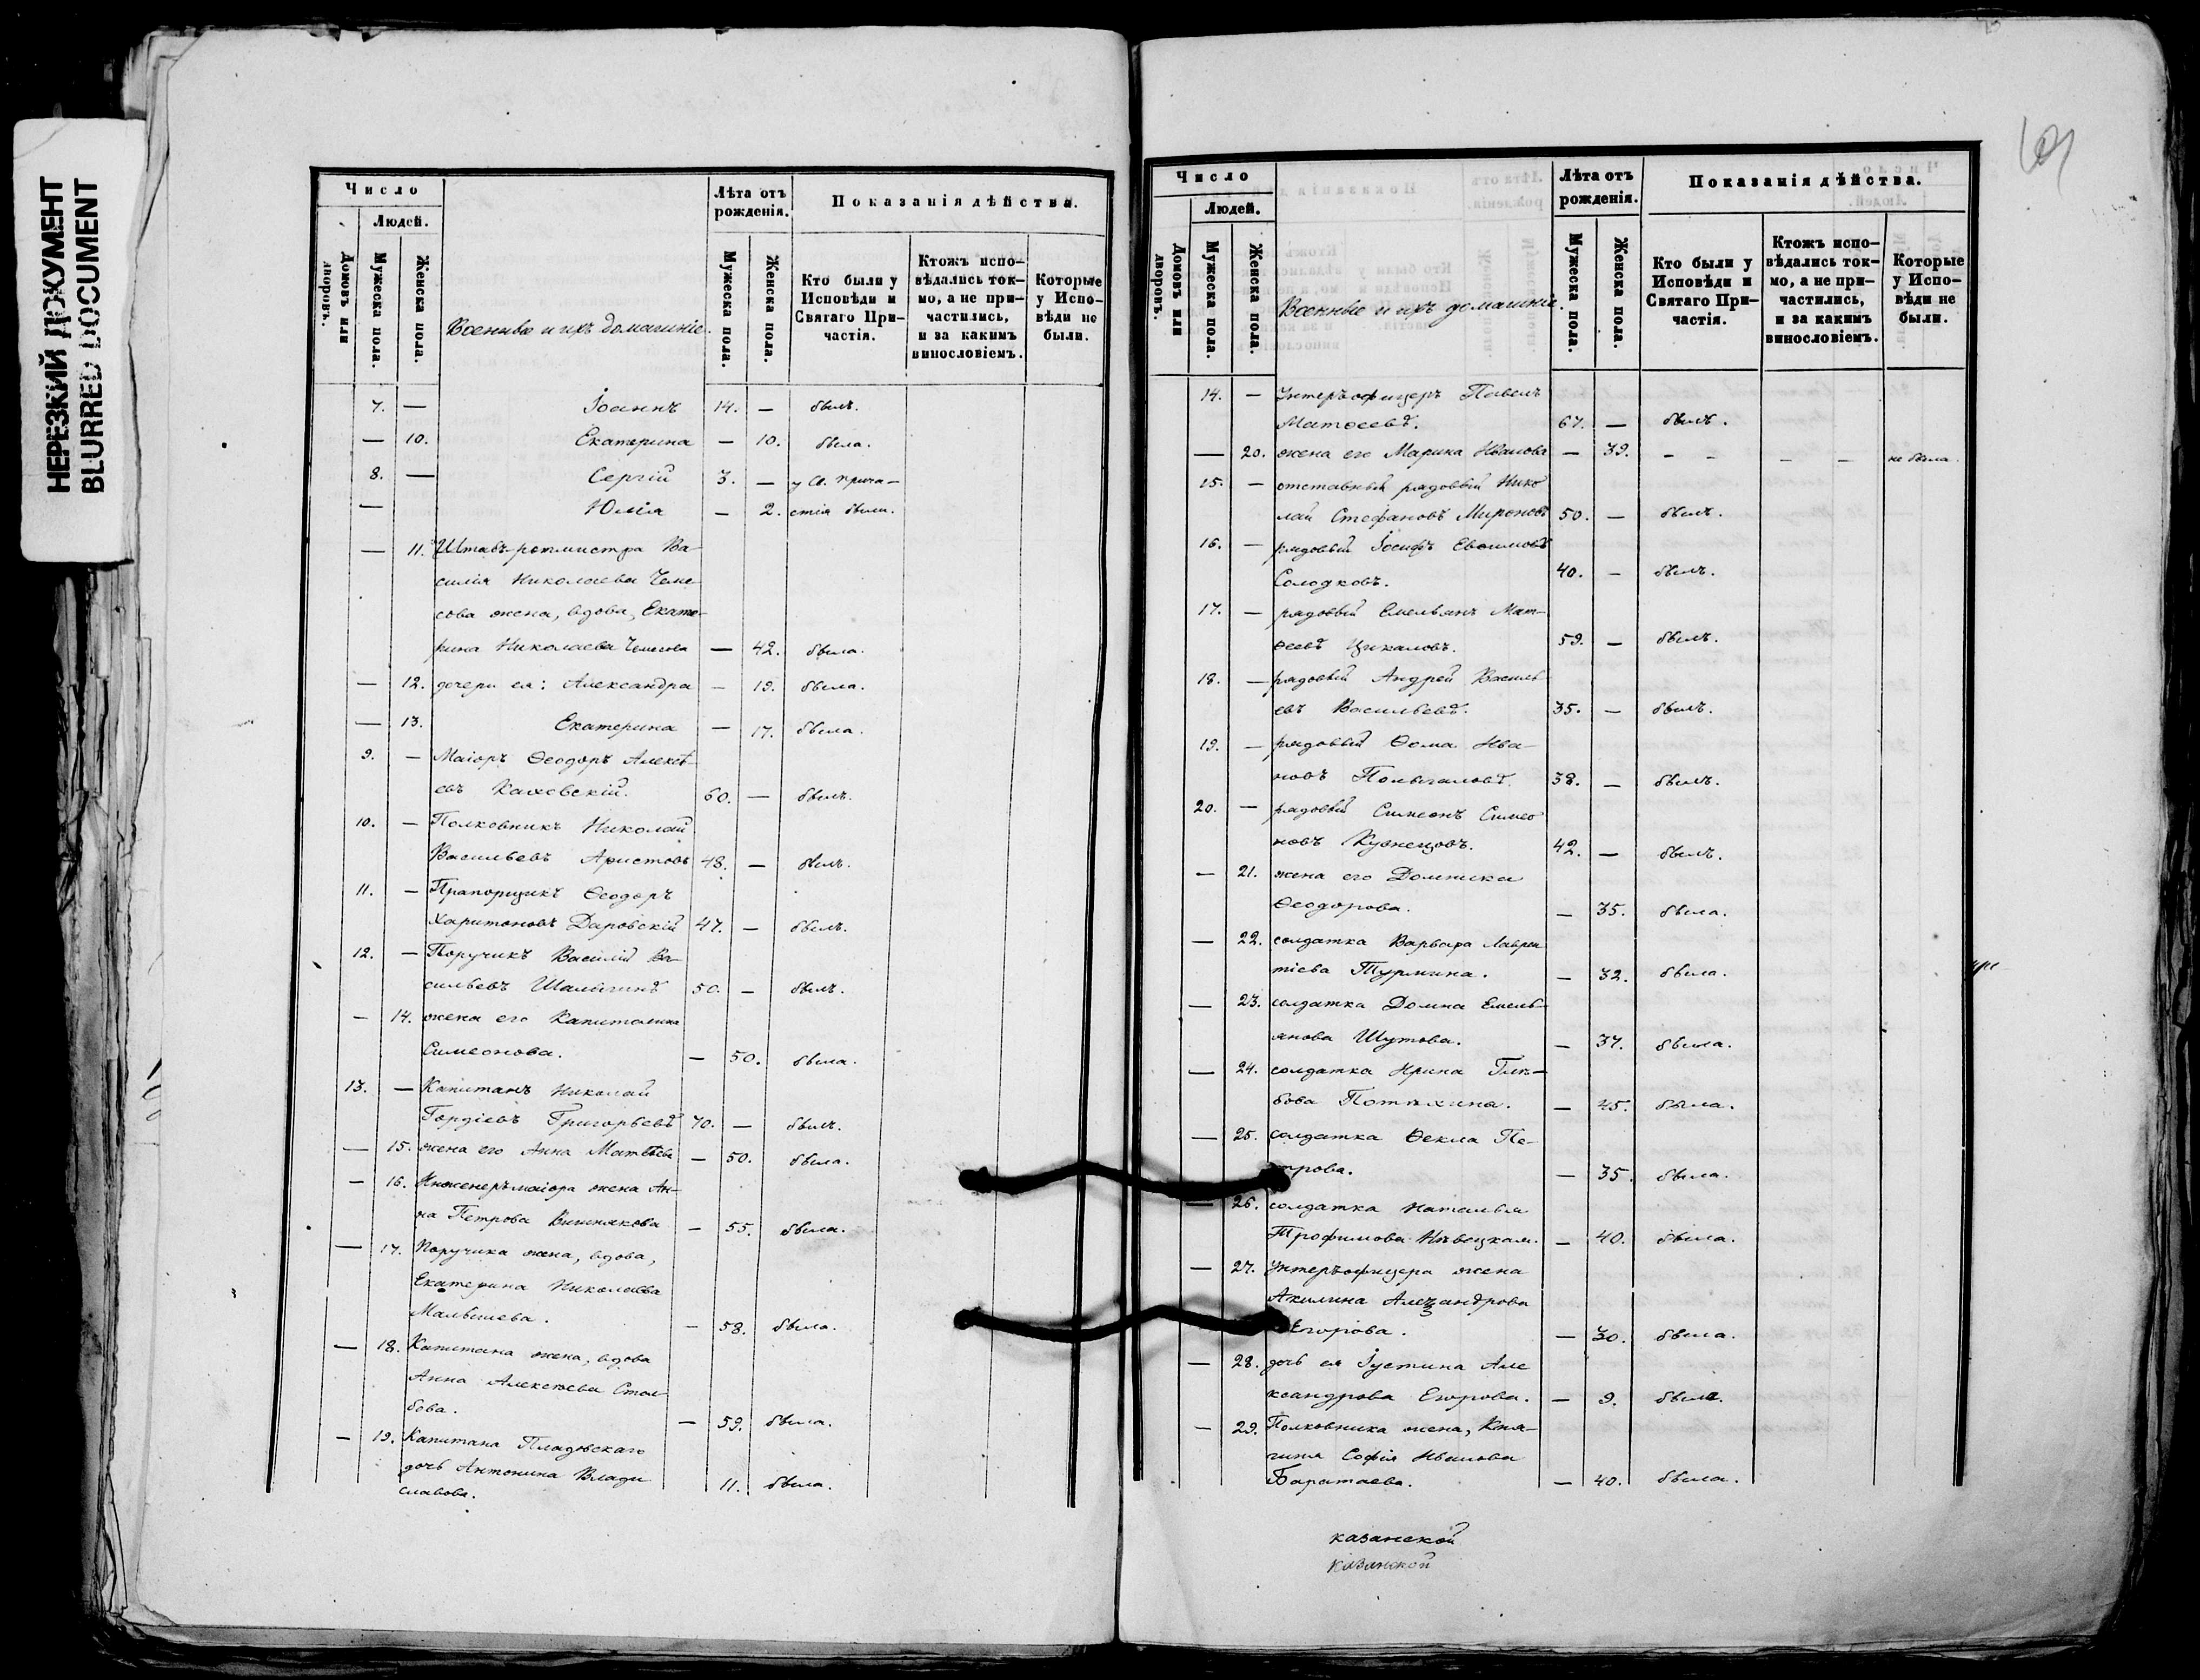 НЕРЕЗКИЙ ДОКУМЕНТ
BLURRED DOCUMENT
Число
Людей.
Домовъ или дворовъ.
Мужеска пола.
Женска пола.
Военные и ихъ домашніе.
Лѣта отъ рожденія.
Мужеска пола.
Женска пола.
Показанія дѣйства.
Кто были у Исповѣди и Святаго Причастія.
Ктожъ исповѣдались токмо, а не причастились, и за какимъ винословіемъ.
Которые у Исповѣди не были.
7. — Іоаннъ 14. — былъ.
— 10. Екатерина — 10. была.
8. — Сергій 3. — у Св. прича-
— Юлія — 2. стія были.
— 11. Штабъ-ротмистра Ва-
силія Николаева Чеме-
сова жена, вдова, Екате-
рина Николаева Чемесова — 42. была.
— 12. дочери ея: Александра — 19. была.
— 13. Екатерина — 17. была.
9. — Маіоръ Ѳеодоръ Алексѣ-
евъ Каховскій. 60. — былъ.
10. — Полковникъ Николай
Васильевъ Аристовъ 48. — былъ.
11. — Прапорщикъ Ѳеодоръ
Харитоновъ Даровскій 47. — былъ.
12. — Поручикъ Василій Ва-
сильевъ Шалыгинъ 50. — былъ.
— 14. жена его Капиталина
Симеонова. — 50. была.
13. — Капитанъ Николай
Гордіевъ Григорьевъ 70. — былъ.
— 15. жена его Анна Матвѣева — 50. была.
— 16. Инженеръ-маіора жена Ан-
на Петрова Вишнякова — 55. была.
— 17. Поручика жена, вдова,
Екатерина Николаева
Малышева. — 58. была.
— 18. Капитана жена, вдова
Анна Алексѣева Стол-
бова. — 59. была.
— 19. Капитана Пладовскаго
дочь Антонина Влади
славова. 11. была.
Число
Людей.
Домовъ или дворовъ.
Мужеска пола.
Женска пола.
Военные и ихъ домашніе.
Лѣта отъ рожденія.
Мужеска пола.
Женска пола.
Показанія дѣйства.
Кто были у Исповѣди и Святаго Причастія.
Ктожъ исповѣдались токмо, а не причастились, и за какимъ винословіемъ.
Которые у Исповѣди не были.
14. — Унтеръ-офицеръ Павелъ
Матѳеевъ. 67. — былъ.
— 20. жена его Марина Иванова — 39. — — — — не была.
15. — отставный рядовый Нико
лай Стефановъ Мироновъ 50. — былъ.
16. — рядовый Іосифъ Евѳимовъ
Солодковъ. 40. — былъ.
17. — рядовый Емельянъ Мат-
ѳеевъ Цикаловъ. 59. — былъ.
18. — рядовый Андрей Василь
евъ Васильевъ. 35. — былъ.
19. — рядовый Ѳома Ива-
новъ Полыгаловъ. 38. — былъ.
20. — рядовый Симеонъ Симео
новъ Кузнецовъ. 42. — былъ.
— 21. жена его Домника
Ѳеодорова. — 35. была.
— 22. солдатка Варвара Лаврен
тіева Турмина. — 32. была.
— 23. солдатка Домна Емель-
янова Шутова. — 37. была.
— 24. солдатка Ирина Глѣ-
бова Потѣхина. — 45. была.
— 25. солдатка Ѳекла Пе-
трова. — 35. была.
— 26. солдатка Наталья
Трофимова Нѣвецкая. — 40. была.
— 27. Унтеръ-офицера жена
Акилина Александрова
Егорова. — 30. была.
— 28. дочь ея Іустина Але
ксандрова Егорова. — 9. была.
— 29. Полковника жена, Кня-
гиня Софія Иванова
Баратаева. — 40. была.
казанской
казанской